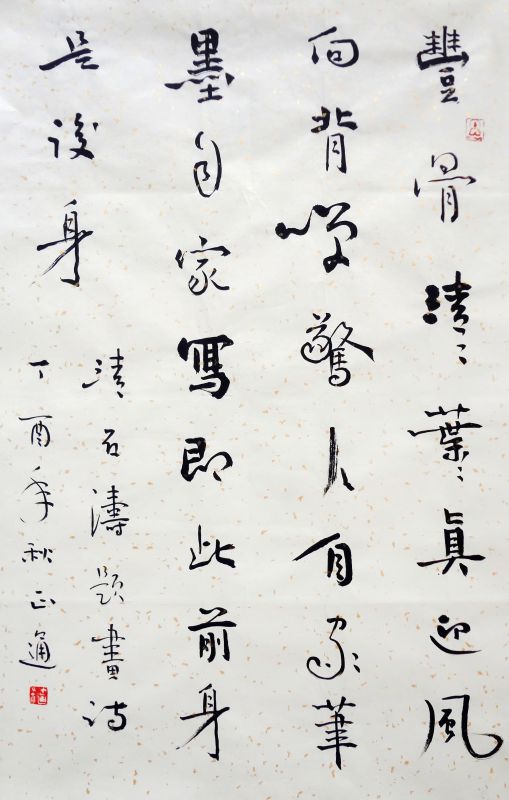 豐骨清〻葉〻眞迎風
向背咲驚人自家筆
墨自家寫即此前身
是後身
清石濤題畫詩
丁酉年秋正通